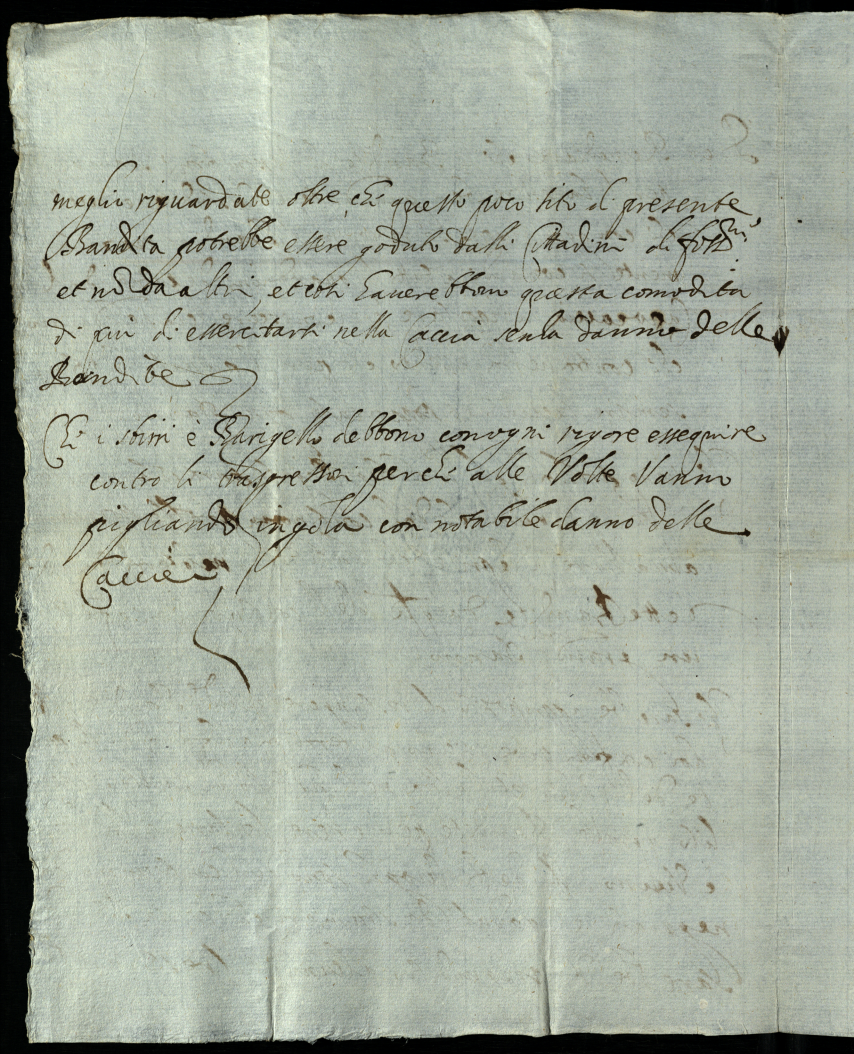 meglio riguardate oltre chi questo poco sito di presente
Bandita potrebbe essere goduto dalli Cittadini di
et nō da altri, et così hauerebbono questa comodità
di più di essercitarsi nella Caccia senza danno delle
Bandite
Chi i sbirri è Barigello debbono con ogni rigore essequire
contro li trasgressori perchi alle Volte Vanno
pigliando in gola con notabile danno delle
Caccie